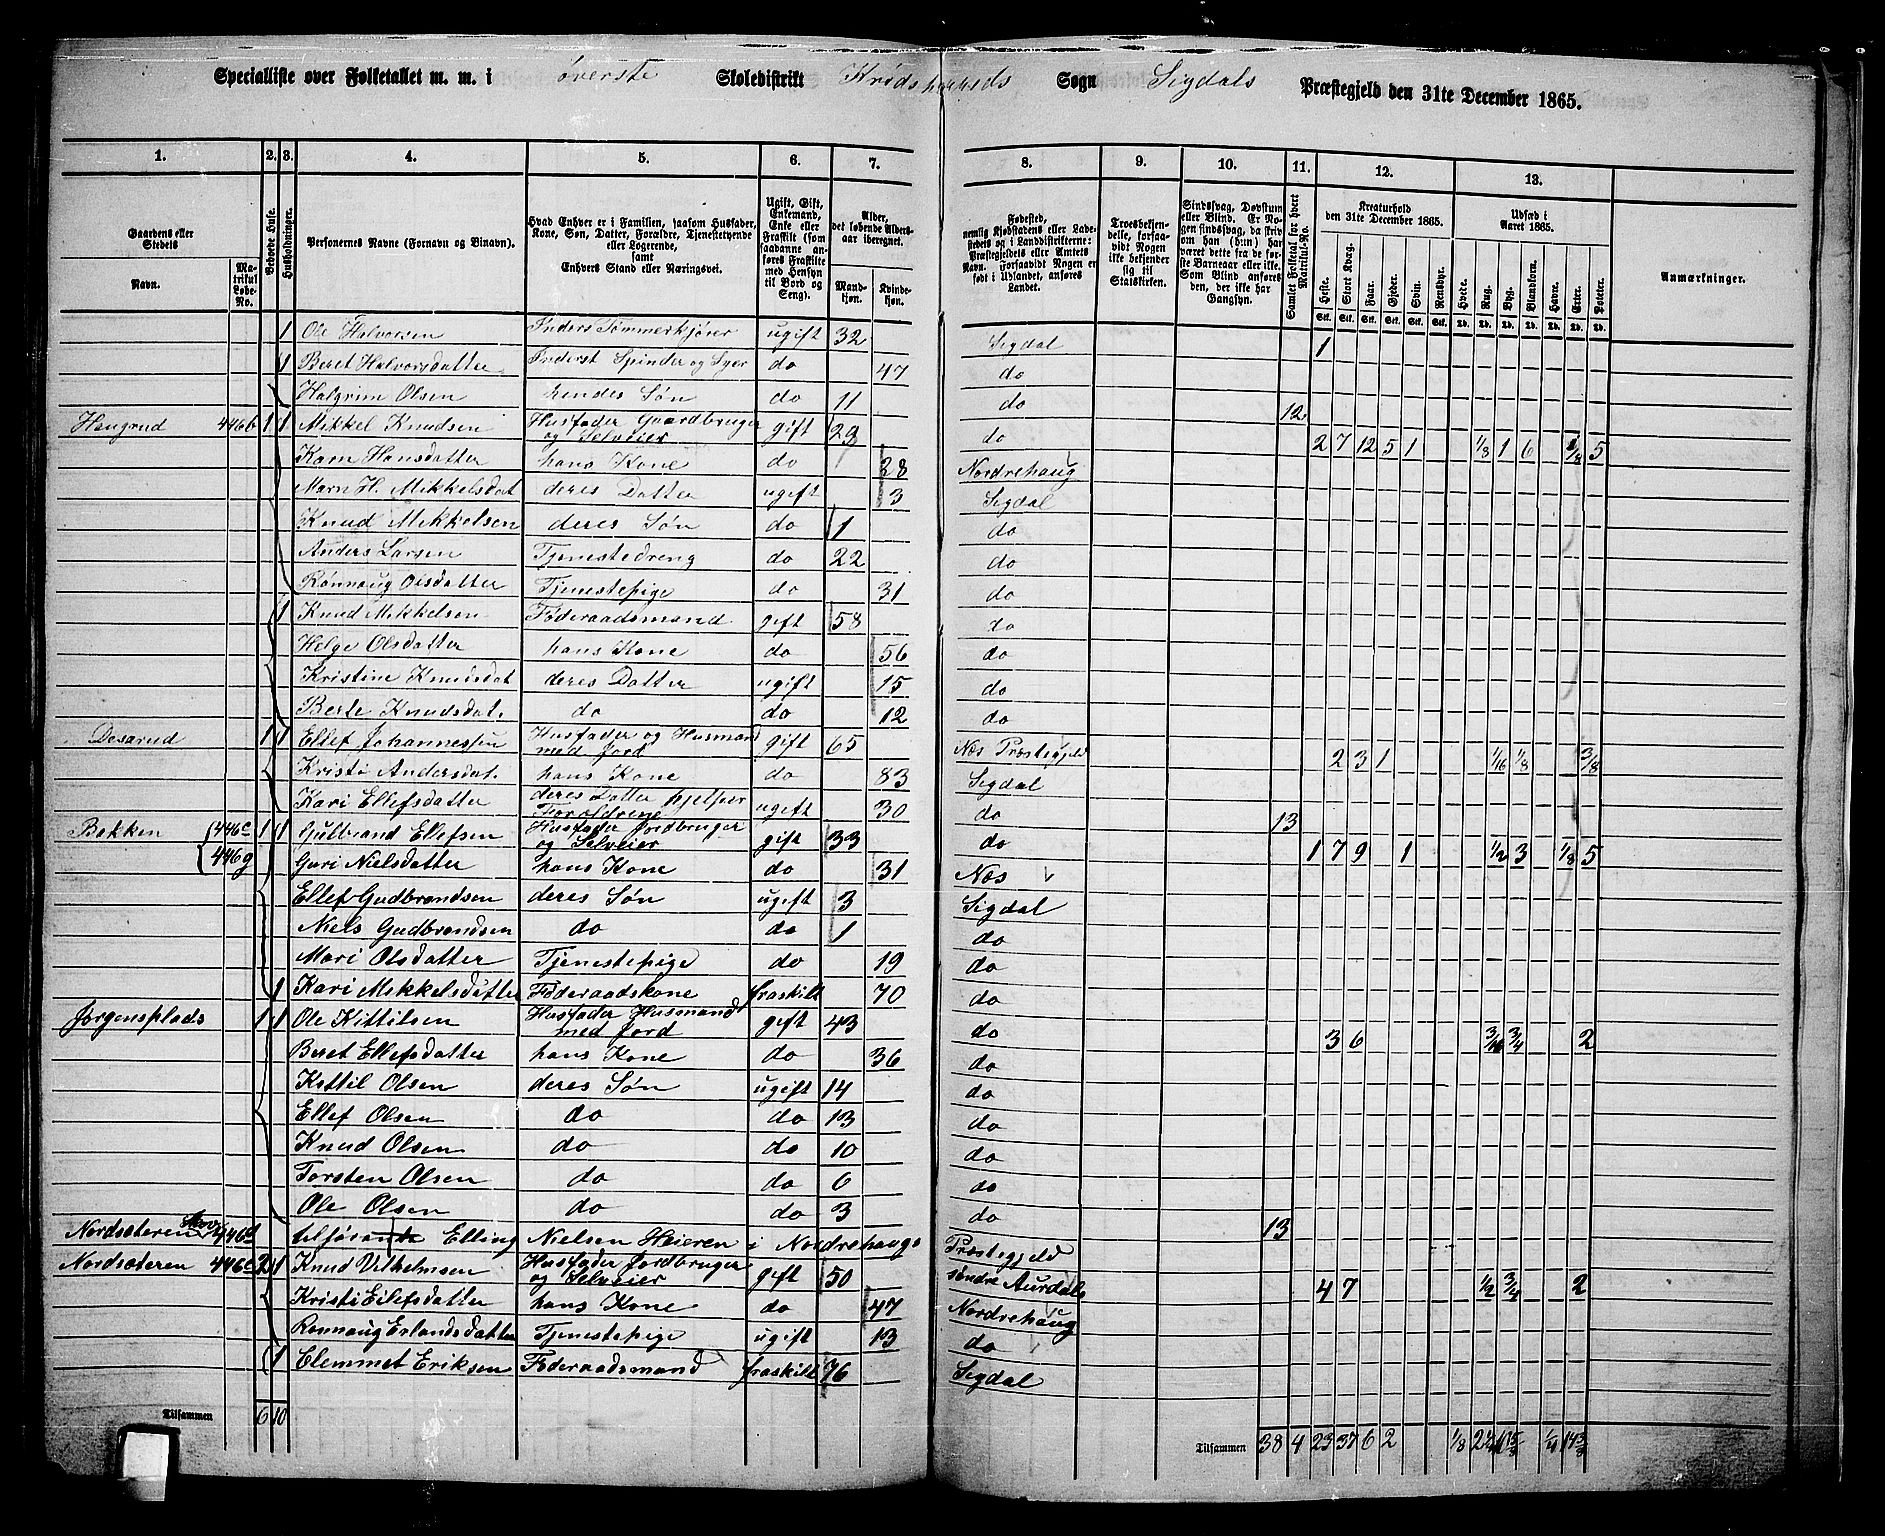 Specialliste over Folketallet m. m. i øverste Skoledistrikt Krødsherreds Sogn Sigdals Præstegjeld den 31te December 1865.
1. 2. 3. 4. 5. 6. 7. 8. 9. 10. 11. 12. 13.
Gaardens eller Stedets Navn. Matrikul Løbe-No. Beboede Huse. Husholdninger. Personernes Navne (Fornavn og Binavn). Hvad Enhver er i Familien, saasom Husfader, Kone, Søn, Datter, Forældre, Tjenestetyende eller Logerende, samt Enhvers Stand eller Næringsvei. Ugift, Gift, Enkemand, Enke eller Fraskilt (som saadanne anføres Fraskilte med Hensyn til Bord og Seng). Alder, det løbende Aldersaar iberegnet. Mandkjøn. Kvindekjøn. Troesbekjendelse, forsaavidt Nogen ikke bekjender sig til Statskirken. Samlet Folketal for hvert Matrikul-No. Kreaturhold den 31te December 1865. Heste. Stort Kvæg. Faar. Gjeder. Svin. Rensdyr. Udsæd i Aaret 1865. Hvede. Rug. Byg. Blandkorn. Havre. Erter. Poteter. Anmærkninger.
1 Ole Halvorsen Inders Tømmerkjører ugift 32 Sigdal 1
1 Beret Halvorsdatter Inderst Spinder og Syer do 47 do
Halgrim Olsen hendes Søn do 11 do 12
Haugrud 446b 1 1 Mikkel Knudsen Husfader Gaardbruger og Selveier gift 29 do 2 7 12 5 1 1/8 1 6 1/8 5
Karn Hansdatter hans Kone do 28 Nordrehaug
Marn H. Mikkelsdat deres Datter ugift 3 Sigdal
Knud Mikkelsen deres Søn do 1 do
Anders Larsen Tjenestedreng do 22 do
Rønnaug Olsdatter Tjenestepige do 31 do
1 Knud Mikkelsen Føderaadsmand gift 58 do
Helge Olsdatter hans Kone do 56 do
Kristine Knudsdat deres Datter ugift 15 do
Berte Knudsdat. do do 12 do
Desarud 1 1 Ellef Johannessen Husfader og Husmand med Jord gift 65 Næs Præstegjeld 2 3 1 1/16 1/8 3/8
Kristi Andersdat. hans Kone do 83 Sigdal
Kari Ellefsdatter deres Datter hjelper Foroldrene ugift 30 do 13
Bekken 446c 446g 1 1 Gulbrand Ellefsen Husfader Jordbruger og Selveier gift 33 do 1 7 9 1 1/2 3 1/8 5
Guri Nielsdatter hans Kone do 31 Næs
Ellef Gudbrandsen deres Søn ugift 3 Sigdal
Niels Gudbrandsen do do 1 do
Mari Olsdatter Tjenestepige do 19 do
1 Kari Mikkelsdatter Føderaadskone fraskilt 70 do
Jørgensplads 1 1 Ole Kittilsen Husfader Husmand med Jord gift 43 do 3 6 3/16 3/4 2
Beret Ellefsdatter hans Kone do 36 do
Kittil Olsen deres Søn ugift 14 do
Ellef Olsen do do 13 do
Knud Olsen do do 10 do
Torsten Olsen do do 6 do
Ole Olsen do do 3 do 13
Nordsæteren Skov 446d tilhørende Elling Nielsen Heieren i Nordrehaugs Præstegjeld
Nordsæteren 446e 2 1 Knud Vilhelmsen Husfader Jordbruger og Selveier gift 50 søndre Aurdals 4 7 1/2 3/4 2
Kristi Eilefsdatter hans Kone do 47 Nordrehaug
Rønnaug Erlandsdatter Tjenestepige ugift 13 do
1 Clemmet Eriksen Føderaadsmand fraskilt 76 Sigdal
Tilsammen 6 10 Tilsammen 38 4 23 37 6 2 1/8